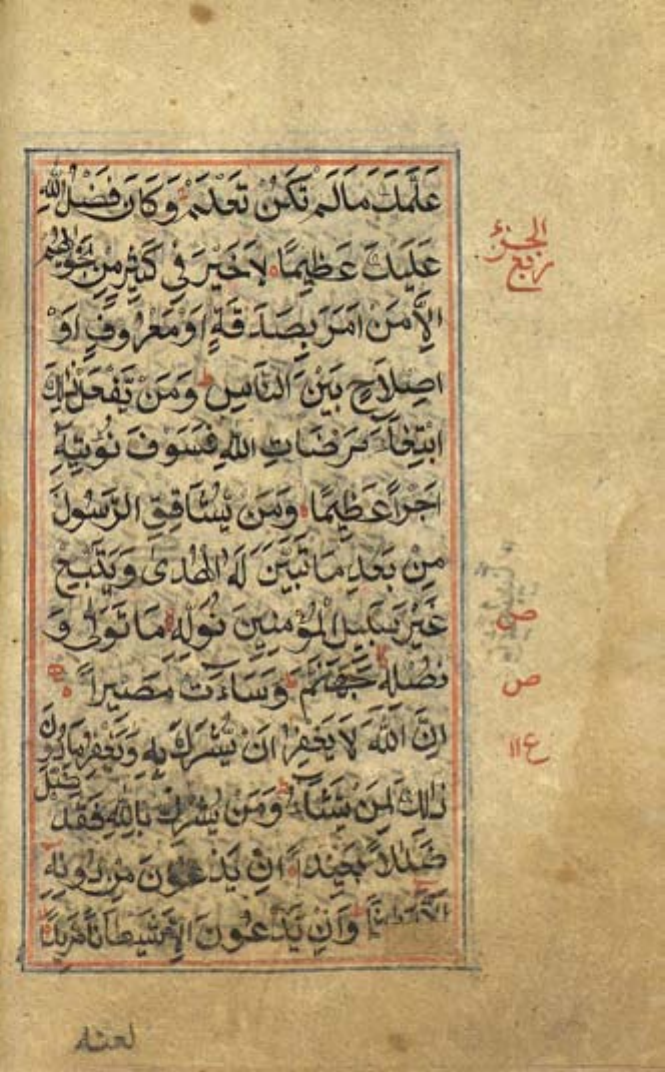 عَلَّمَكَ مَا لَمْ تَكُنْ تَعْلَمْ وَكَانَ فَضْلُ اللهِ
عَلَيْكَ عَظِيمًا لَا خَيْرَ فِي كَثِيرٍ مِنْ نَجْوٰىهُمْ
اِلَّا مَنْ اَمَرَ بِصَدَقَةٍ اَوْ مَعْرُوفٍ اَوْ
اِصْلَاحٍ بَيْنَ النَّاسِ وَمَنْ يَفْعَلْ ذٰلِكَ
ابْتِغَآءَ مَرْضَاتِ اللهِ فَسَوْفَ نُؤْتِيهِ
اَجْرًا عَظِيمًا وَمَنْ يُشَاقِقِ الرَّسُولَ
مِنْ بَعْدِ مَا تَبَيَّنَ لَهُ الْهُدٰى وَيَتَّبِعْ
غَيْرَ سَبِيلِ الْمُؤْمِنِينَ نُوَلِّهِ مَا تَوَلّٰى وَ
نُصْلِهِ جَهَنَّمَ وَسَآءَتْ مَصِيرًا
اِنَّ اللهَ لَا يَغْفِرُ اَنْ يُشْرَكَ بِهِ وَيَغْفِرُ مَا دُونَ
ذٰلِكَ لِمَنْ يَشَآءُ وَمَنْ يُشْرِكْ بِاللهِ فَقَدْ ضَلَّ
ضَلَالًا بَعِيدًا اِنْ يَدْعُونَ مِنْ دُونِهِ
اِلَّا اِنَاثًا وَاِنْ يَدْعُونَ اِلَّا شَيْطَانًا مَرِيدًا
لعنه
الجزء
ربع
ص
ع ١١